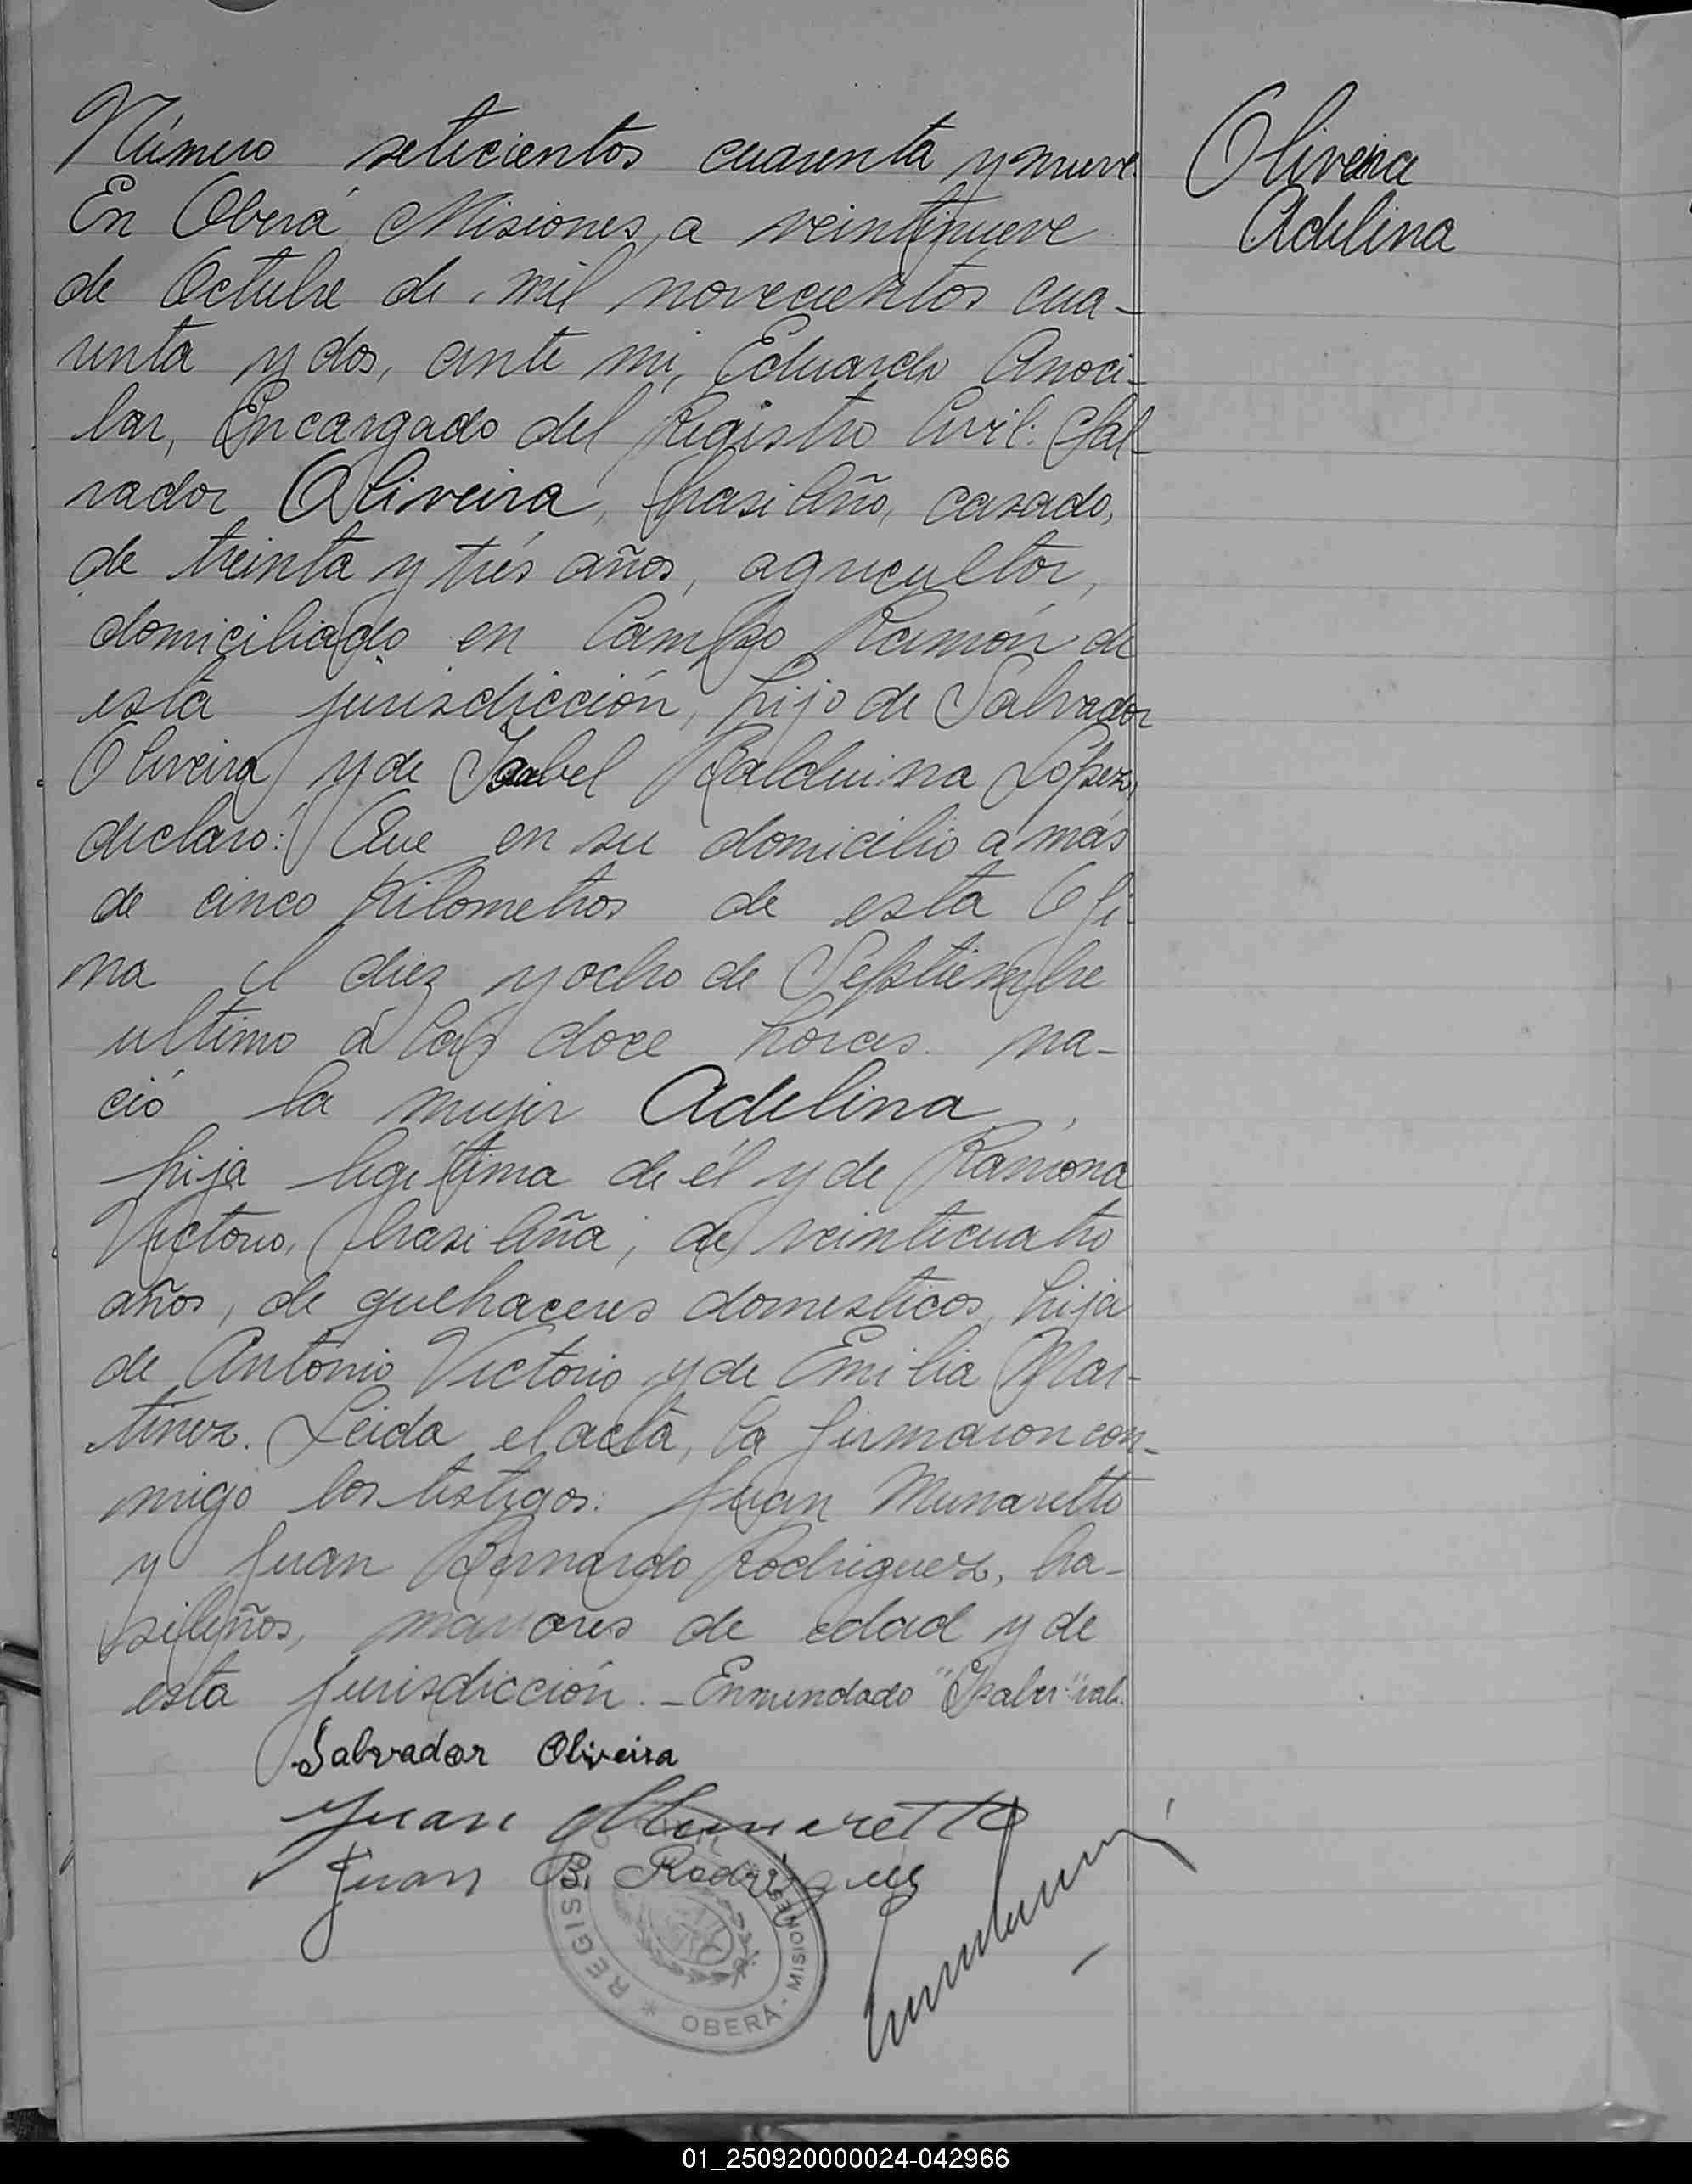 Número setecientos cuarenta y nueve
Olivera
Adelina
En Oberá Misiones, a veintinueve
de Octubre de mil novecientos cua-
renta y dos, ante mi, Eduardo Anoci-
bar, Encargado del Registro Civil: Sal-
vador Oliveira, brasileño, casado,
de treinta y trés años, agricultor,
domiciliado en Campo Ramón de
esta jurisdicción, hijo de Salvador
Oliveira y de Isabel Balduina López,
declaro: Que en su domicilio a más
de cinco kilometros de esta Ofi-
na el diez y ocho de Septiembre
ultimo á las doce horas na-
ció la mujer Adelina,
hija legitima de él y de Ramona
Victorio, brasileña, de veinticuatro
años, de quehaceres domesticos, hija
de Antonio Victorio y de Emilia Mar-
tinez. Leida el acta, la firmaron con-
migo los testigos: Juan Munaretto
y Juan Bernardo Rodriguez, bra-
sileños, mayores de edad y de
esta jurisdicción. - Enmendado "Isabel" vale.
Salvador Oliveira
Juan Munaretto
Juan B. Rodriguez
REGIS
OBERÁ - MISIONES
01_250920000024-042966